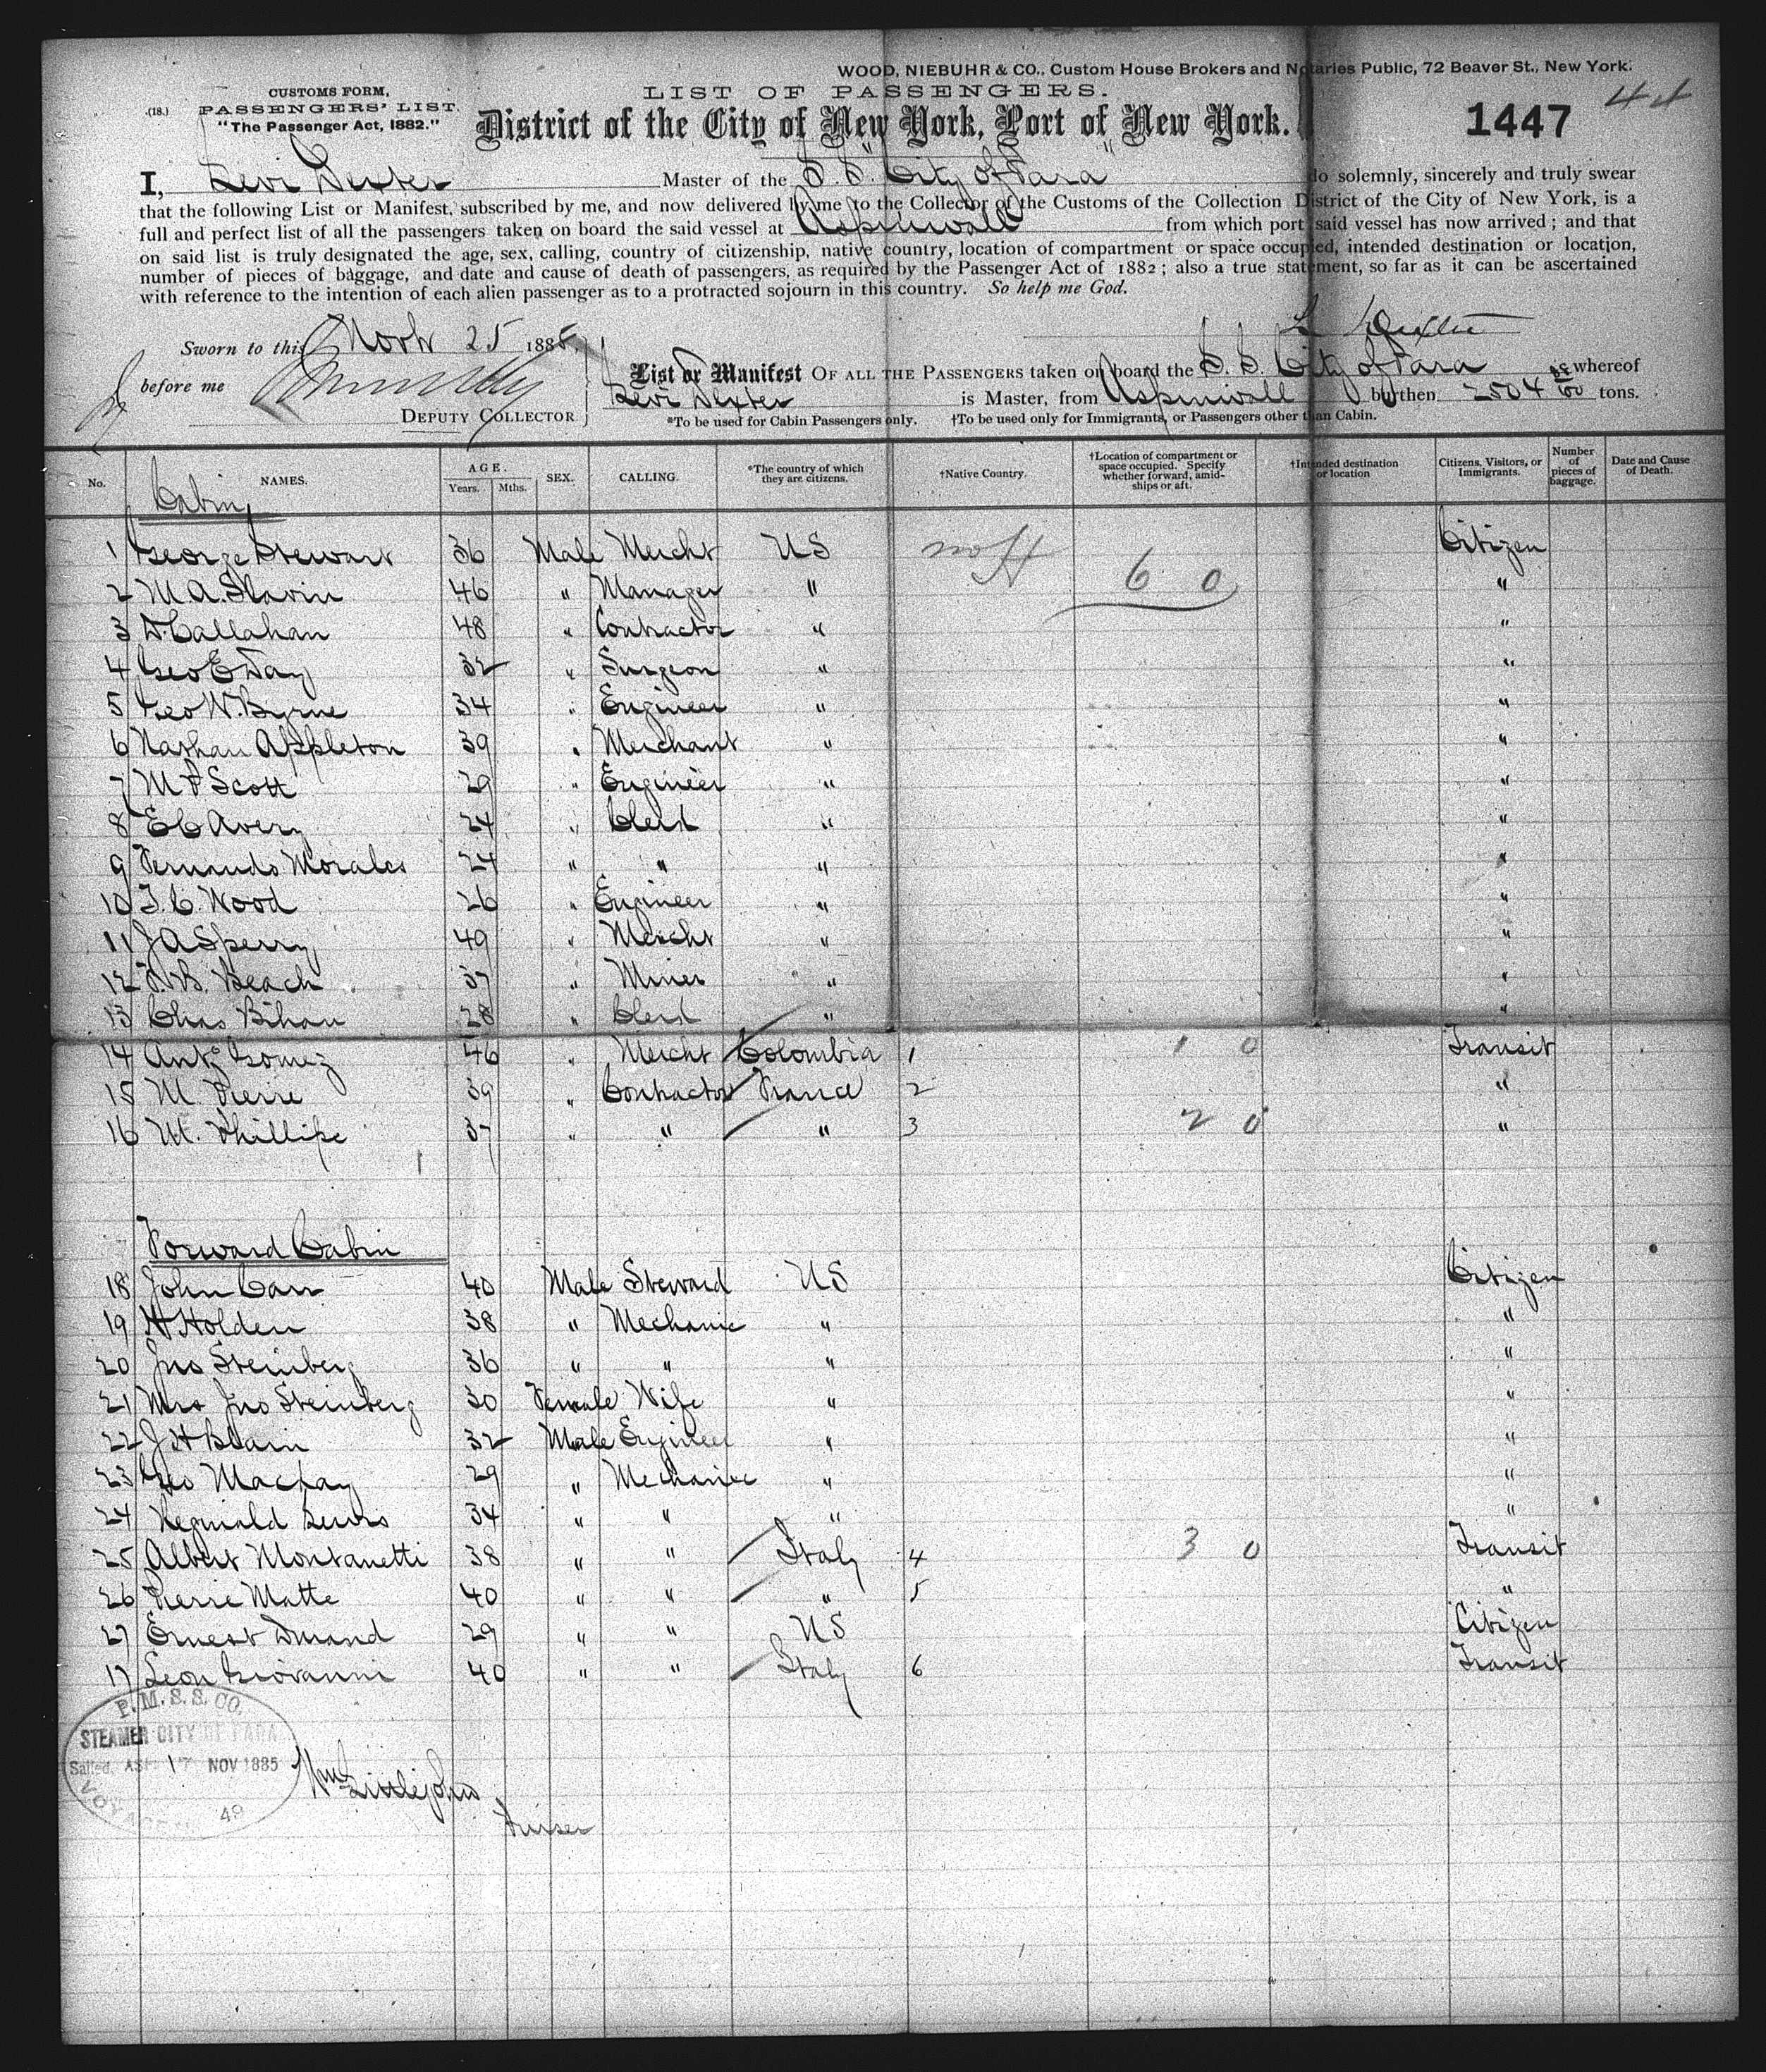 WOOD, NIEBUHR & CO., Custom House Brokers and Notaries Public, 72 Beaver St., New York.
(18.) CUSTOMS FORM,
PASSENGERS' LIST.
"The Passenger Act, 1882."
LIST OF PASSENGERS.
District of the City of New York, Port of New York.
1447 44
I, Levi Dexter Master of the S. S. City of Para do solemnly, sincerely and truly swear
that the following List or Manifest, subscribed by me, and now delivered by me to the Collector of the Customs of the Collection District of the City of New York, is a
full and perfect list of all the passengers taken on board the said vessel at Aspinwall from which port said vessel has now arrived; and that
on said list is truly designated the age, sex, calling, country of citizenship, native country, location of compartment or space occupied, intended destination or location,
number of pieces of baggage, and date and cause of death of passengers, as required by the Passenger Act of 1882; also a true statement, so far as it can be ascertained
with reference to the intention of each alien passenger as to a protracted sojourn in this country. So help me God.
L Dexter
Sworn to this Novr 25 1885,
before me
DEPUTY COLLECTOR
List or Manifest OF ALL THE PASSENGERS taken on board the S. S. City of Para whereof
Levi Dexter is Master, from Aspinwall burthen 2504 tons.
*To be used for Cabin Passengers only. †To be used only for Immigrants, or Passengers other than Cabin.
No. NAMES. AGE. Years. Mths. SEX. CALLING. *The country of which they are citizens. †Native Country. †Location of compartment or space occupied. Specify whether forward, amidships or aft. †Intended destination or location Citizens, Visitors, or Immigrants. Number of pieces of baggage. Date and Cause of Death.
Cabin
1 George Stewart 36 Male Mercht US 6 0 Citizen
2 M. A. Slavin 46 " Manager " "
3 D. Callahan 48 " Contractor " "
4 Geo E Day 32 " Surgeon " "
5 Geo W. Byrne 34 " Engineer " "
6 Nathan Appleton 39 " Merchant " "
7 M P Scott 29 " Engineer " "
8 E C Avery 24 " Clerk " "
9 Fernando Morales 24 " " " "
10 T. C. Wood 26 " Engineer " "
11 J A Sperry 49 " Mercht " "
12 F. B. Beach 37 " Miner " "
13 Chas Bihan 28 " Clerk " "
14 Anto Gomez 46 " Mercht Colombia 1 1 0 Transit
15 M. Pierre 39 " Contractor France 2 "
16 M. Phillipe 37 " " " 3 2 0 "
Forward Cabin
18 John Carr 40 Male Steward US Citizen
19 H Holden 38 " Mechanic " "
20 Jno Steinberg 36 " " " "
21 Mrs Jno Steinberg 30 Female Wife " "
22 J H Blain 32 Male Engineer " "
23 Geo Mackay 29 " Mechanic " "
24 Reginald Lewis 34 " " " "
25 Albert Montanetti 38 " " Italy 4 3 0 Transit
26 Pierre Matte 40 " " " 5 "
27 Ernest Durand 29 " " US Citizen
17 Leon Giovanni 40 " " Italy 6 Transit
P. M. S. S. CO.
STEAMER CITY OF PARA
Sailed, ASP 17 NOV 1885
VOYAGE 49
Wm Littlejohn
Purser